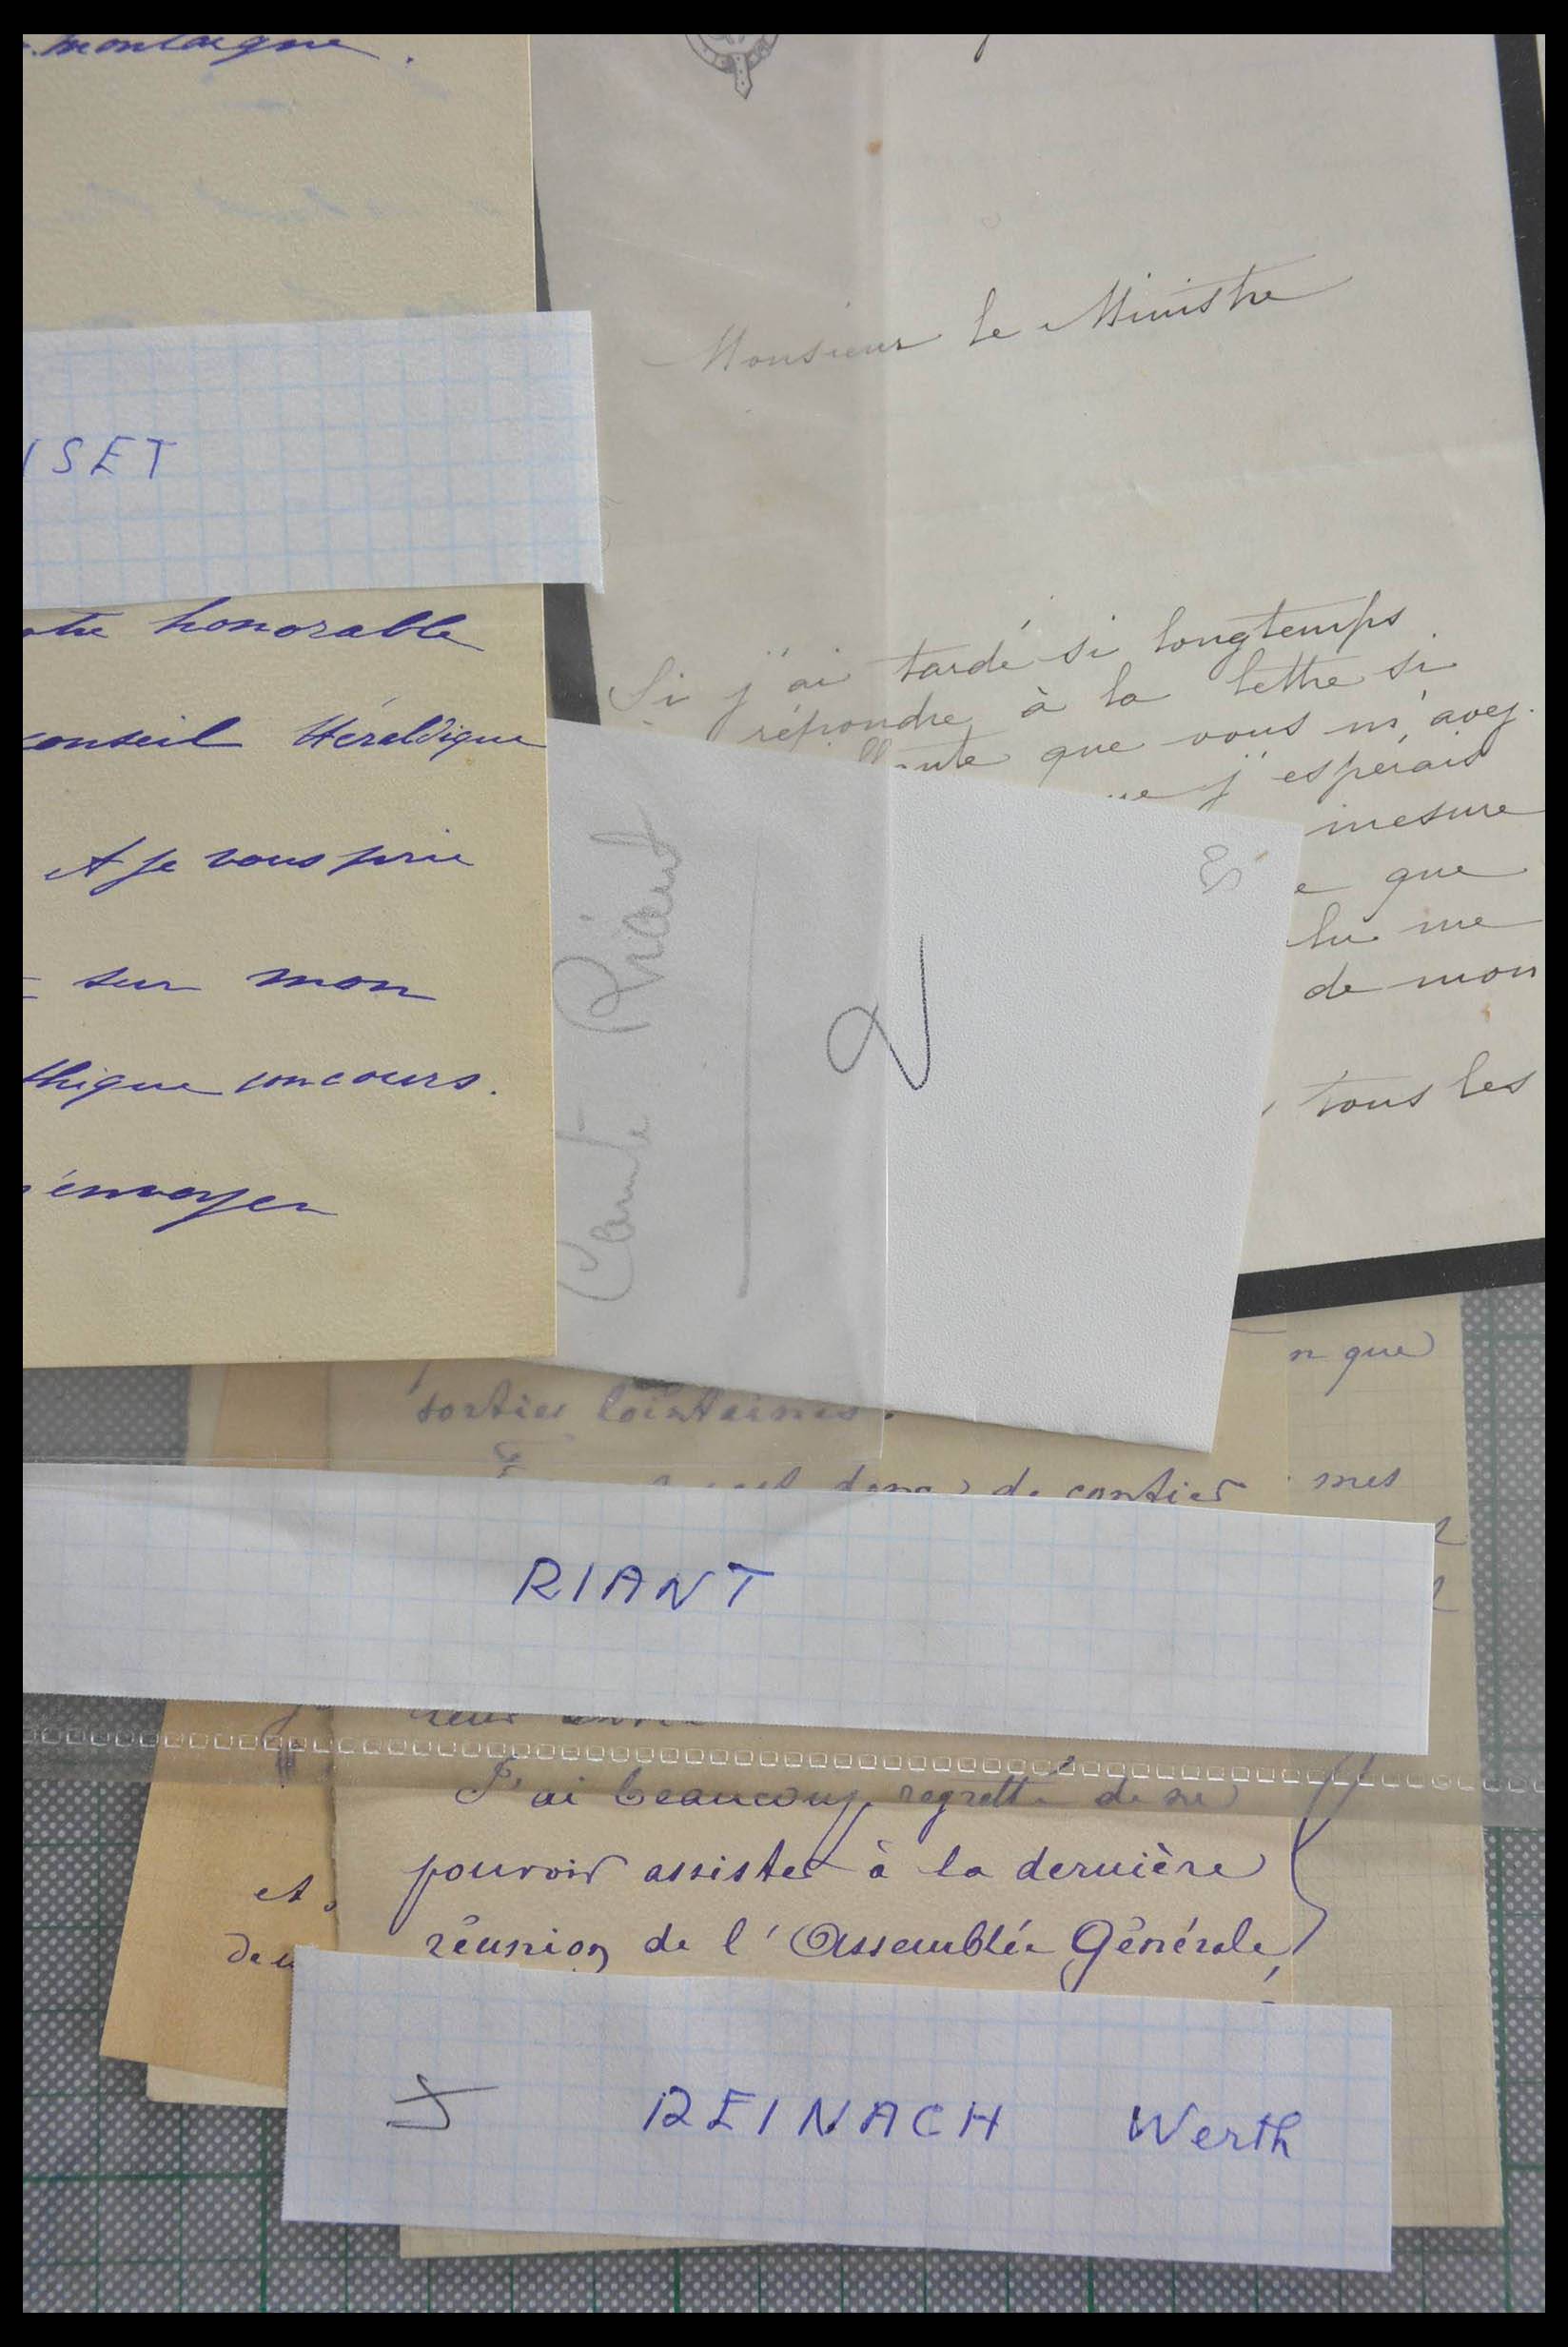 montaigne.
ISET
honorable
conseil Héraldique
et je vous prie
sur mon
thique concours.
envoyer
Monsieur le Ministre
Si j'ai tardé si longtemps
répondre à la lettre si
que vous m'avez
j'espérais
mesure
que
me
de mon
tous les
Comte Riant
n que
sorties lointaines.
mes
RIANT
J'ai beaucoup regretté de ne
pouvoir assister à la dernière
réunion de l'Assemblée Générale,
et
REINACH Werth